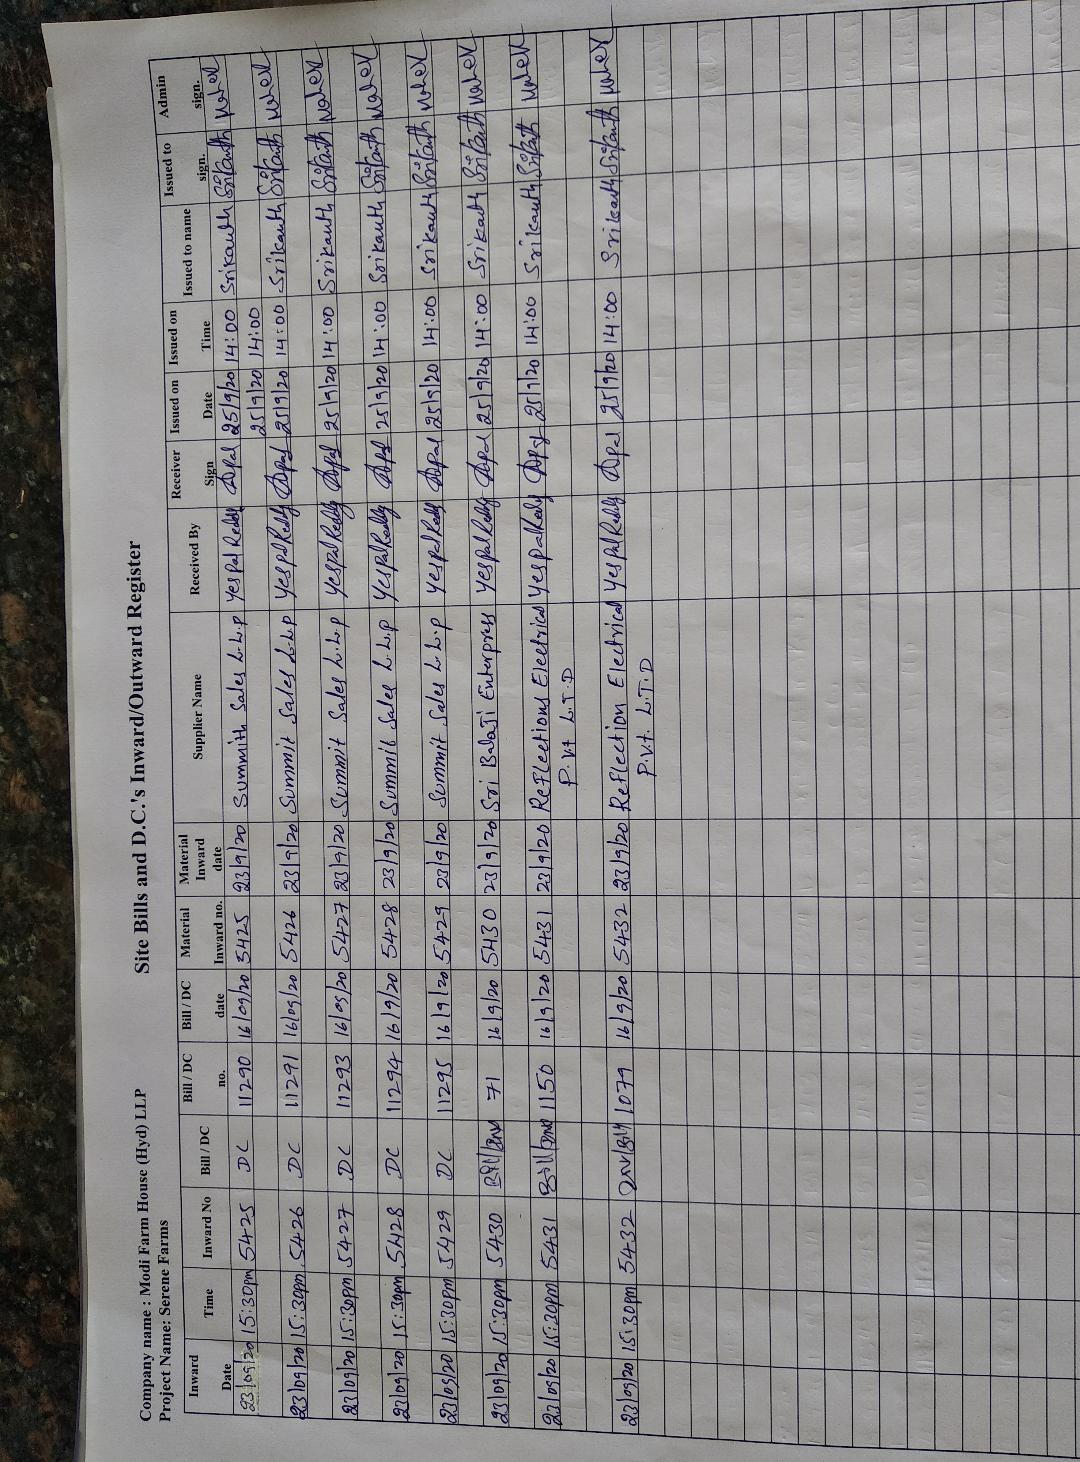 Company name : Modi Farm House (Hyd) LLP Site Bills and D.C.'s Inward/Outward Register
Project Name: Serene Farms
Inward Date Time Inward No Bill / DC Bill / DC no. Bill / DC date Material Inward no. Material Inward date Supplier Name Received By Receiver Sign Issued on Date Issued on Time Issued to name Issued to sign. Admin sign.
23/09/20 15:30pm 5425 DC 11290 16/09/20 5425 23/9/20 Summith Sales L.L.p Yespal Reddy 25/9/20 14:00 Srikanth Srikanth
25/9/20 14:00
23/09/20 15:30pm 5426 DC 11291 16/09/20 5426 23/9/20 Summit Sales L.L.p Yespal Reddy 25/9/20 14:00 Srikanth Srikanth
23/09/20 15:30pm 5427 DC 11293 16/09/20 5427 23/9/20 Summit Sales L.L.p Yespal Reddy 25/9/20 14:00 Srikanth Srikanth
23/09/20 15:30pm 5428 DC 11294 16/9/20 5428 23/9/20 Summit Sales L.L.p Yespal Reddy 25/9/20 14:00 Srikanth Srikanth
23/09/20 15:30pm 5429 DC 11295 16/9/20 5429 23/9/20 Summit Sales L.L.p Yespal Reddy 25/9/20 14:00 Srikanth Srikanth
23/09/20 15:30pm 5430 Bill/Inv 71 16/9/20 5430 23/9/20 Sri Balaji Enterpress Yespal Reddy 25/9/20 14:00 Srikath Srikanth
23/09/20 15:20pm 5431 Bill/Inv 1150 16/9/20 5431 23/9/20 Reflections Electrical Yespal Redy 25/9/20 14:00 Srikanth Srikanth
P.Vt L.T.D
23/09/20 15:30pm 5432 Inv/Bill 1079 16/9/20 5432 23/9/20 Reflection Electrical Yespal Reddy 25/9/20 14:00 Srikanth Srikanth
P.v.t. L.T.D